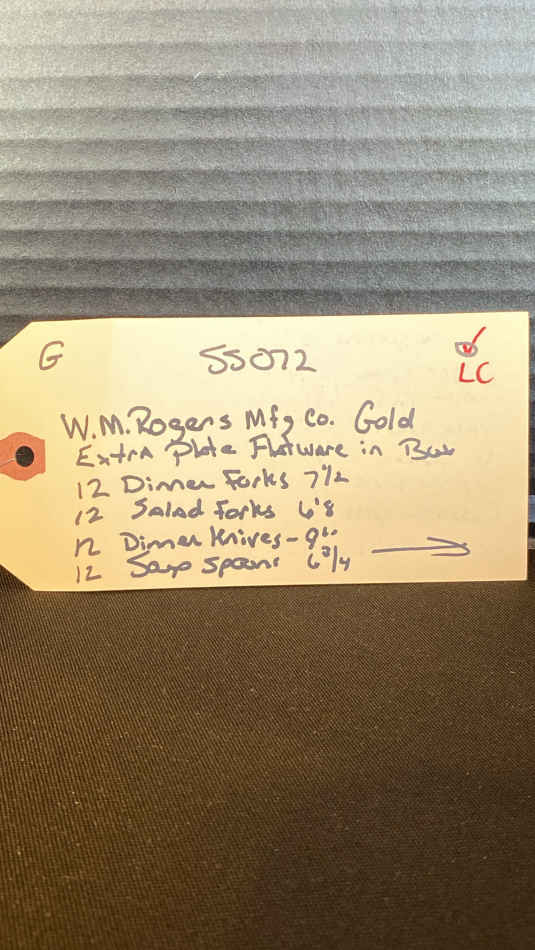 G SS072
LC
W.M. Rogers Mfg Co. Gold
Extra Plate Flatware in Box
12 Dinner Forks 7 1/2
12 Salad Forks 6 1/8
12 Dinner Knives -
12 Soup Spoons 6 3/4